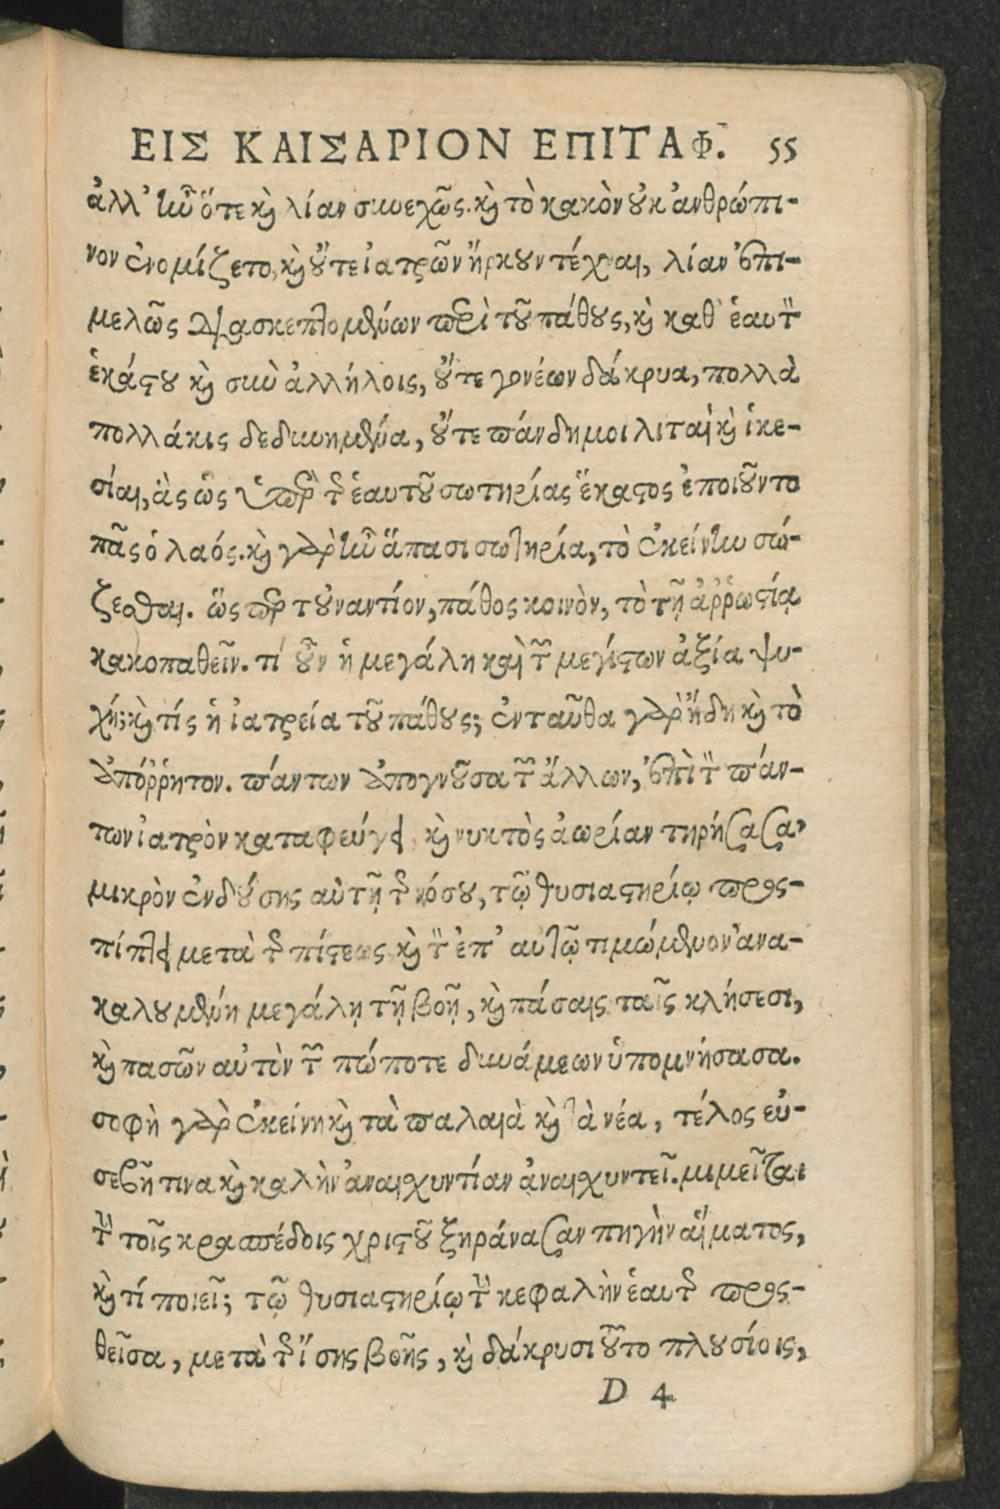 ΕΙΣ ΚΑΙΣΑΡΙΟΝ ΕΠΙΤΑΦ. 55
ἀλλ' ἦν ὅτε καὶ λίαν συνεχῶς. καὶ τὸ κακὸν οὐκ ἀνθρώπι-
νον ἐνομίζετο, καὶ οὔτε ἰατρῶν ἤρκουν τέχναι, λίαν ἐπι-
μελῶς διασκεπτομένων περὶ τοῦ πάθους, καὶ καθ' ἑαυτὸν
ἑκάστου καὶ σὺν ἀλλήλοις, οὔτε γονέων δάκρυα, πολλὰ
πολλάκις δεδυνημένα, οὔτε πάνδημοι λιταὶ καὶ ἱκε-
σίαι, ἃς ὡς ὑπὲρ τῆς ἑαυτοῦ σωτηρίας ἕκαστος ἐποιοῦντο
πᾶς ὁ λαός. καὶ γὰρ ἦν ἅπασι σωτηρία, τὸ ἐκείνην σώ-
ζεσθαι. ὥσπερ τοὐναντίον, πάθος κοινὸν, τὸ τῇ ἀῤῥωστίᾳ
κακοπαθεῖν. τί οὖν ἡ μεγάλη καὶ τῶν μεγίστων ἀξία ψυ-
χή; καὶ τίς ἡ ἰατρεία τοῦ πάθους; ἐνταῦθα γὰρ ἤδη καὶ τὸ
ἀπόῤῥητον. πάντων ἀπογνοῦσα τῶν ἄλλων, ἐπὶ τὸν πάν-
των ἰατρὸν καταφεύγει, καὶ νυκτὸς ἀωρίαν τηρήσασα,
μικρὸν ἐνδούσης αὐτῇ τῆς νόσου, τῷ θυσιαστηρίῳ προς-
πίπτει μετὰ τῆς πίστεως καὶ τὸν ἐπ' αὐτῷ τιμώμενον ἀνα-
καλουμένη μεγάλῃ τῇ βοῇ, καὶ πάσαις ταῖς κλήσεσι,
καὶ πασῶν αὐτὸν τῶν πώποτε δυνάμεων ὑπομνήσασα.
σοφὴ γὰρ ἐκείνη καὶ τὰ παλαιὰ καὶ τὰ νέα, τέλος εὐ-
σεβῆ τινα καὶ καλὴν ἀναισχυντίαν ἀναισχυντεῖ. μιμεῖται
τὴν τοῖς κρασπέδοις χριστοῦ ξηράνασαν πηγὴν αἵματος,
καὶ τί ποιεῖ; τῷ θυσιαστηρίῳ τὴν κεφαλὴν ἑαυτῆς προς-
θεῖσα, μετὰ τῆς ἴσης βοῆς, καὶ δάκρυσι τοῦτο πλουσίοις,
D 4